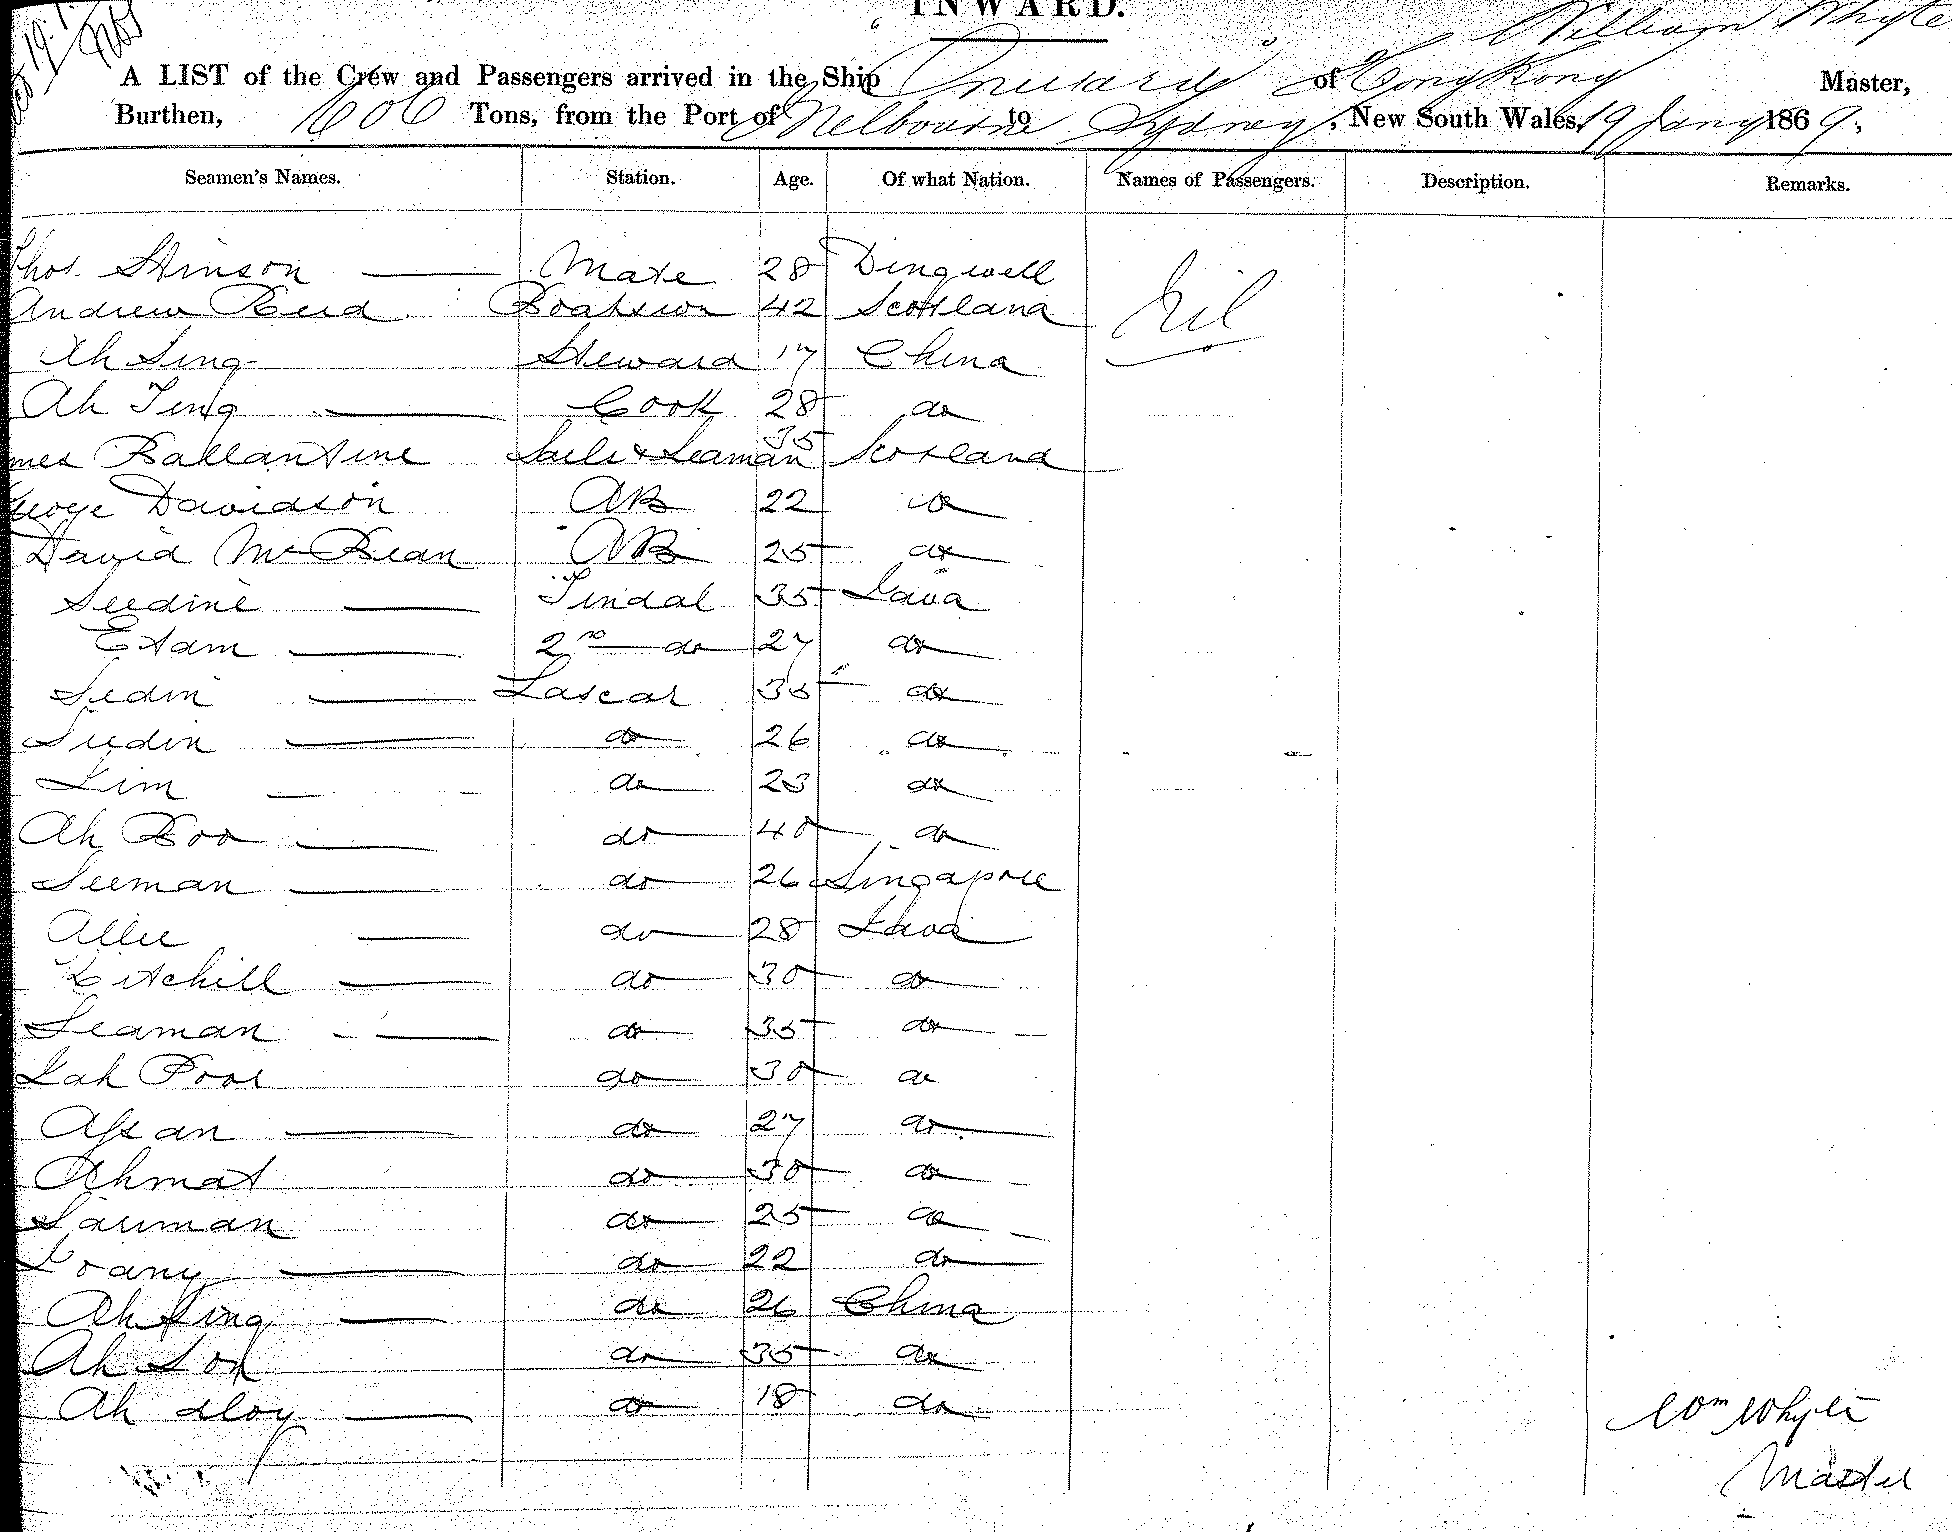 INWARD.
William Whyte
A LIST of the Crew and Passengers arrived in the Ship Onward of Hong Kong Master,
Burthen, 606 Tons, from the Port of Melbourne to Sydney, New South Wales, 19 Jany 1869.
Seamen's Names. Station. Age. Of what Nation. Names of Passengers. Description. Remarks.
Thos. Stinson Mate 28 Dingwell Nil
Andrew Reid Boatswn 42 Scotland
Ah Sing Steward 17 China
Ah Ting Cook 28 do
James Ballantine Sails & Seaman 35 Scotland
George Davidson AB 22 do
David McBean AB 25 do
Seedine Tindal 35 Java
Etam 2nd do 27 do
Sedin Lascar 35 do
Siedin do 26 do
Kim do 23 do
Ah Boo do 40 do
Seeman do 26 Singapore
Allie do 28 Java
Kitchill do 30 do
Seaman do 35 do
Kah Poor do 30 do
Assan do 27 do
Ahmat do 30 do
Sariman do 25 do
do 22 do
Ah Sing do 26 China
Ah do 35 do
Ah do 18 do
Wm Whyte
Master